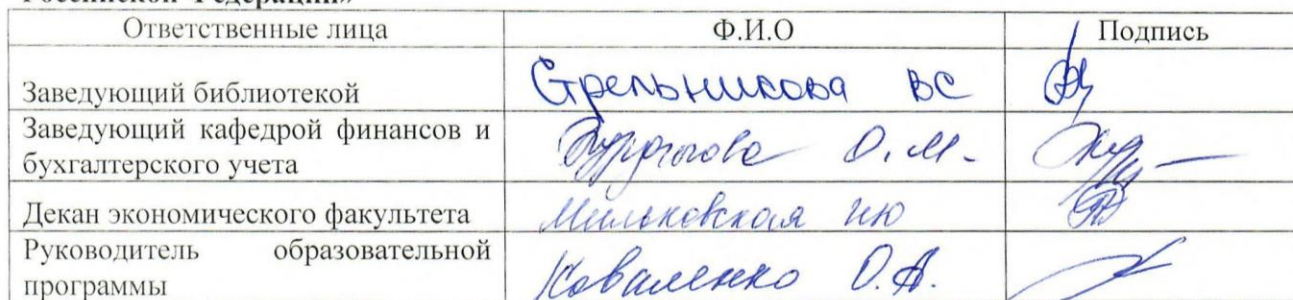 Российской Федерации»
Ответственные лица Ф.И.О Подпись
Заведующий библиотекой Стрельникова ВС
Заведующий кафедрой финансов и
бухгалтерского учета О.М.
Декан экономического факультета Мильковская ИЮ
Руководитель образовательной
программы Коваленко О.А.